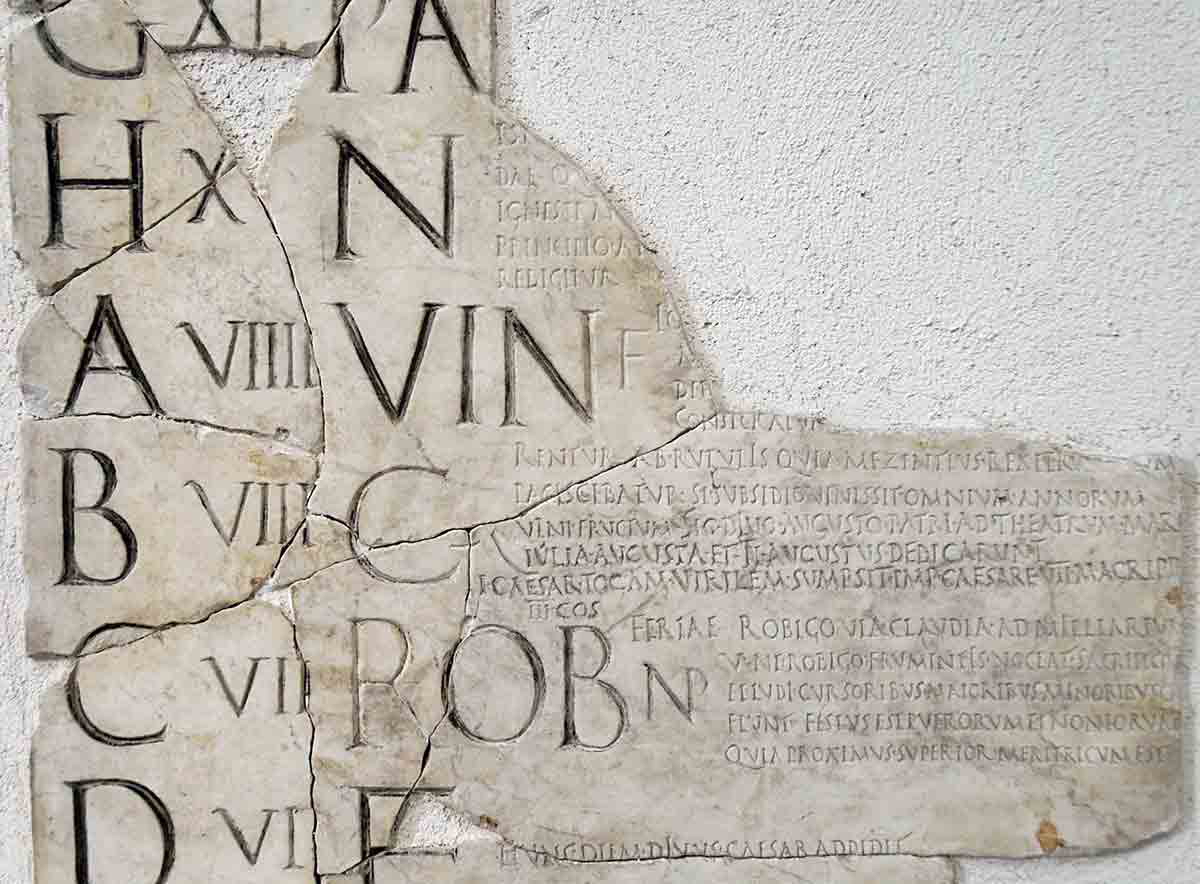 G XI PA
H X N
PRINCIPIO
A VIIII VIN F
B VIII C
RENTVR · AB RVTVLIS QVIA MEZENTIVS REX
PACISCEBATVR · SI SVBSIDIO VENISSET OMNIVM · ANNORVM
VINI FRVCTVM · SIG · DIVO · AVGVSTO PATRI · AD THEATRVM · MAR
IVLIA · AVGVSTA ET · TI · AVGVSTVS DEDICARVNT
CAESAR TOGAM VIRILEM SVMPSIT IMP CAESARE VII M AGRIPP
III COS
C VII ROB NP FERIAE ROBIGO VIA CLAVDIA · AD MILLIARIVM
V · NE ROBIGO FRVMENTIS NOCEAT · SACRIFICIVM
ET LVDI CVRSORIBVS MAIORIBVS MINORIBVSQ
FIVNT FESTVS EST PVERORVM LENONIORVM
QVIA PROXIMVS · SVPERIOR MERETRICVM EST
D VI F HVNC DIEM · DIVVS CAESAR ADDIDIT